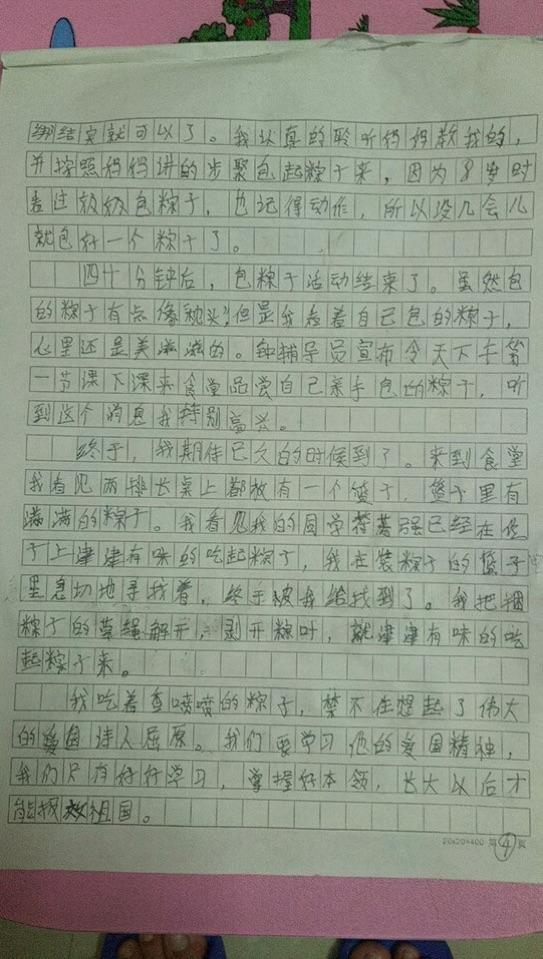 绑结实就可以了。我认真的聆听妈妈教我的，
并按照妈妈讲的步聚包起粽子来，因为8岁时
看过奶奶包粽子，也记得动作，所以没几会儿
就包好一个粽子了。
四十分钟后，包粽子活动结束了。虽然包
的粽子有点像枕头，但是我看着自己包的粽子，
心里还是美滋滋的。钟辅导员宣布今天下午第
一节课下课来食堂品尝自己亲手包的粽子，听
到这个消息我特别高兴。
终于，我期待已久的时候到了。来到食堂
我看见两排长桌上都放有一个篮子，篮子里有
满满的粽子。我看见我的同学强已经在位
子上津津有味的吃起粽子，我在装粽子的篮子
里急切地寻找着，终于被我给找到了。我把捆
粽子的草绳解开，剥开粽叶，就津津有味的吃
起粽子来。
我吃着香喷喷的粽子，禁不住想起了伟大
的爱国诗人屈原。我们要学习他的爱国精神，
我们只有好好学习，掌握好本领，长大以后才
能报效祖国。
20x20=400 第4页